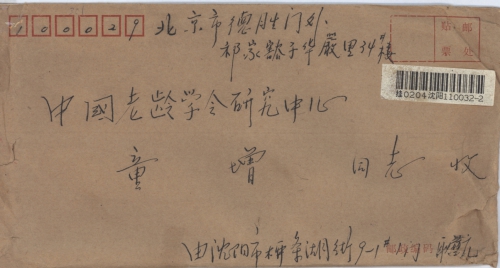 100029 北京市德胜门外
祁家豁子华严里34楼
贴 邮
票 处
挂0204沈阳110032-2
中国老龄学会研究中心
童增 同志 收
由沈阳市 湖街9-1
邮政编码